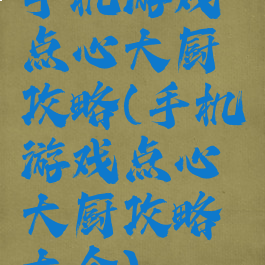 手机游戏
点心大厨
攻略(手机
游戏点心
大厨攻略
大全)